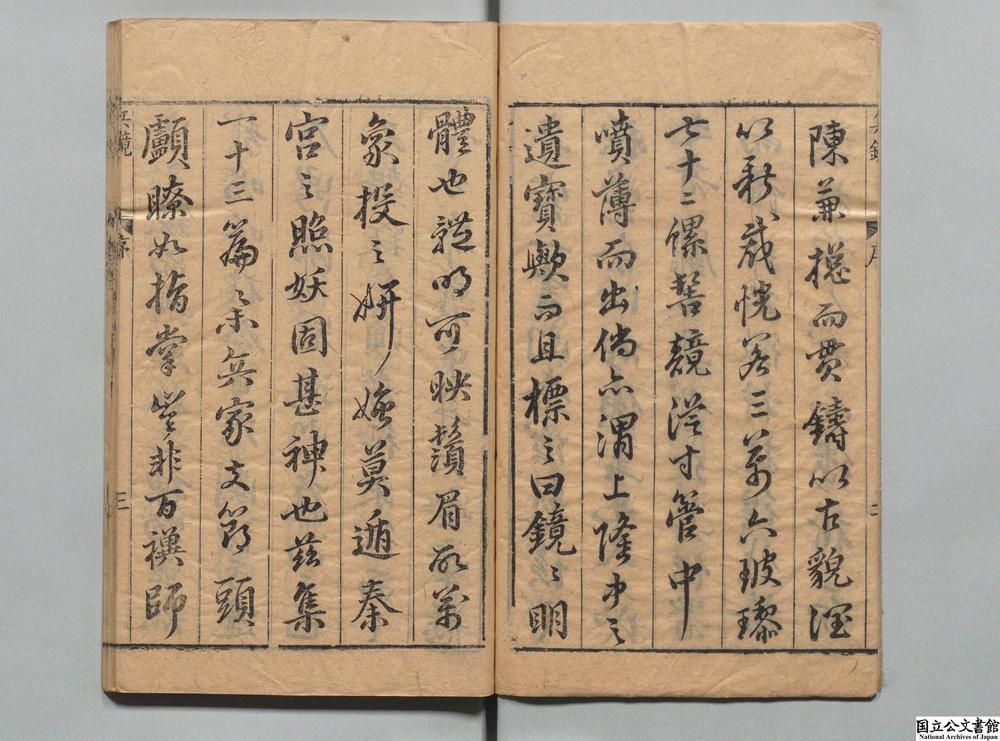 陳兼揔而貫鑄以古貌溼
以新裁恍若三萬六玻瓈
七十二螺髻競從寸管中
噴薄而出倘亦渭上隆中之
遺寶歟而且標之曰鏡〻明
體也體明可映鬚眉而萬
象投之妍媸莫遁秦
宮之照妖固甚神也茲集
一十三篇〻采兵家支節頭
顱瞭如指掌豈非百禩師
兵鏡
序
二
兵鏡
序
三
国立公文書館
National Archives of Japan